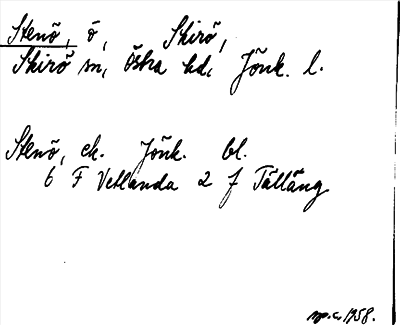 Stenö, ö, Skirö,
Skirö sn, Östra hd, Jönk. l.
Stenö, ek. Jönk. bl.
6 F Vetlanda 2 f Tälläng
1958.